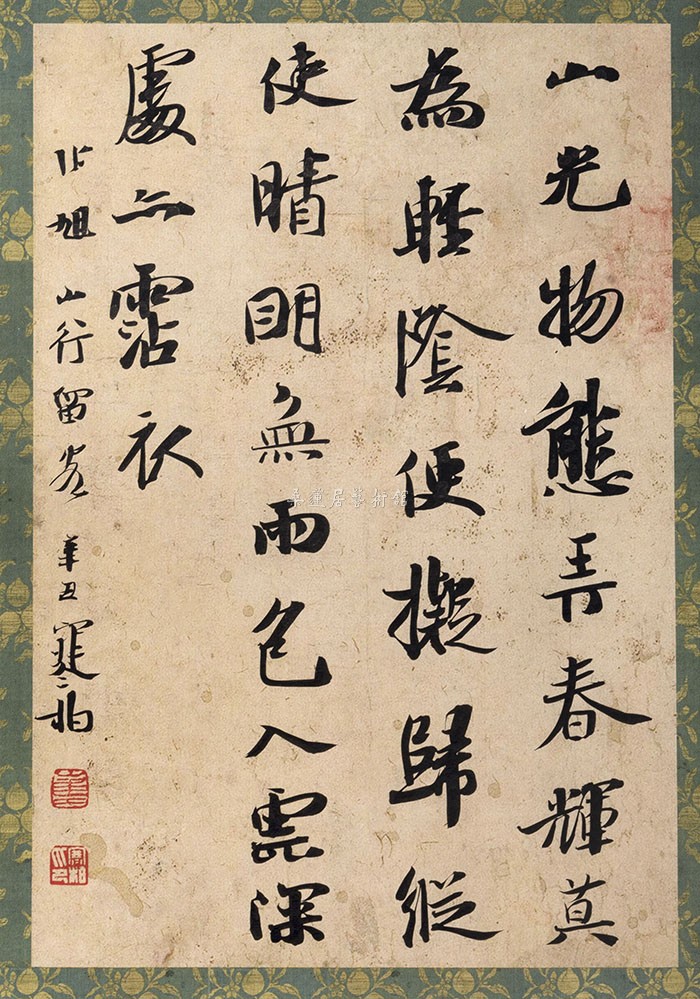 山光物態弄春輝莫
為輕陰便擬歸縱
使晴明無雨色入雲深
處亦霑衣
张旭 山行留客 辛丑 寒柏